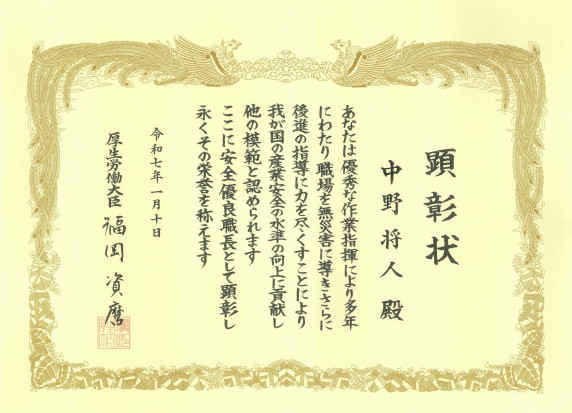 顕彰状
中野将人 殿
あなたは優秀な作業指揮により多年
にわたり職場を無災害に導きさらに
後進の指導に力を尽くすことにより
我が国の産業安全の水準の向上に貢献し
他の模範と認められます
ここに安全優良職長として顕彰し
永くその栄誉を称えます
令和七年一月十日
厚生労働大臣 福岡資麿